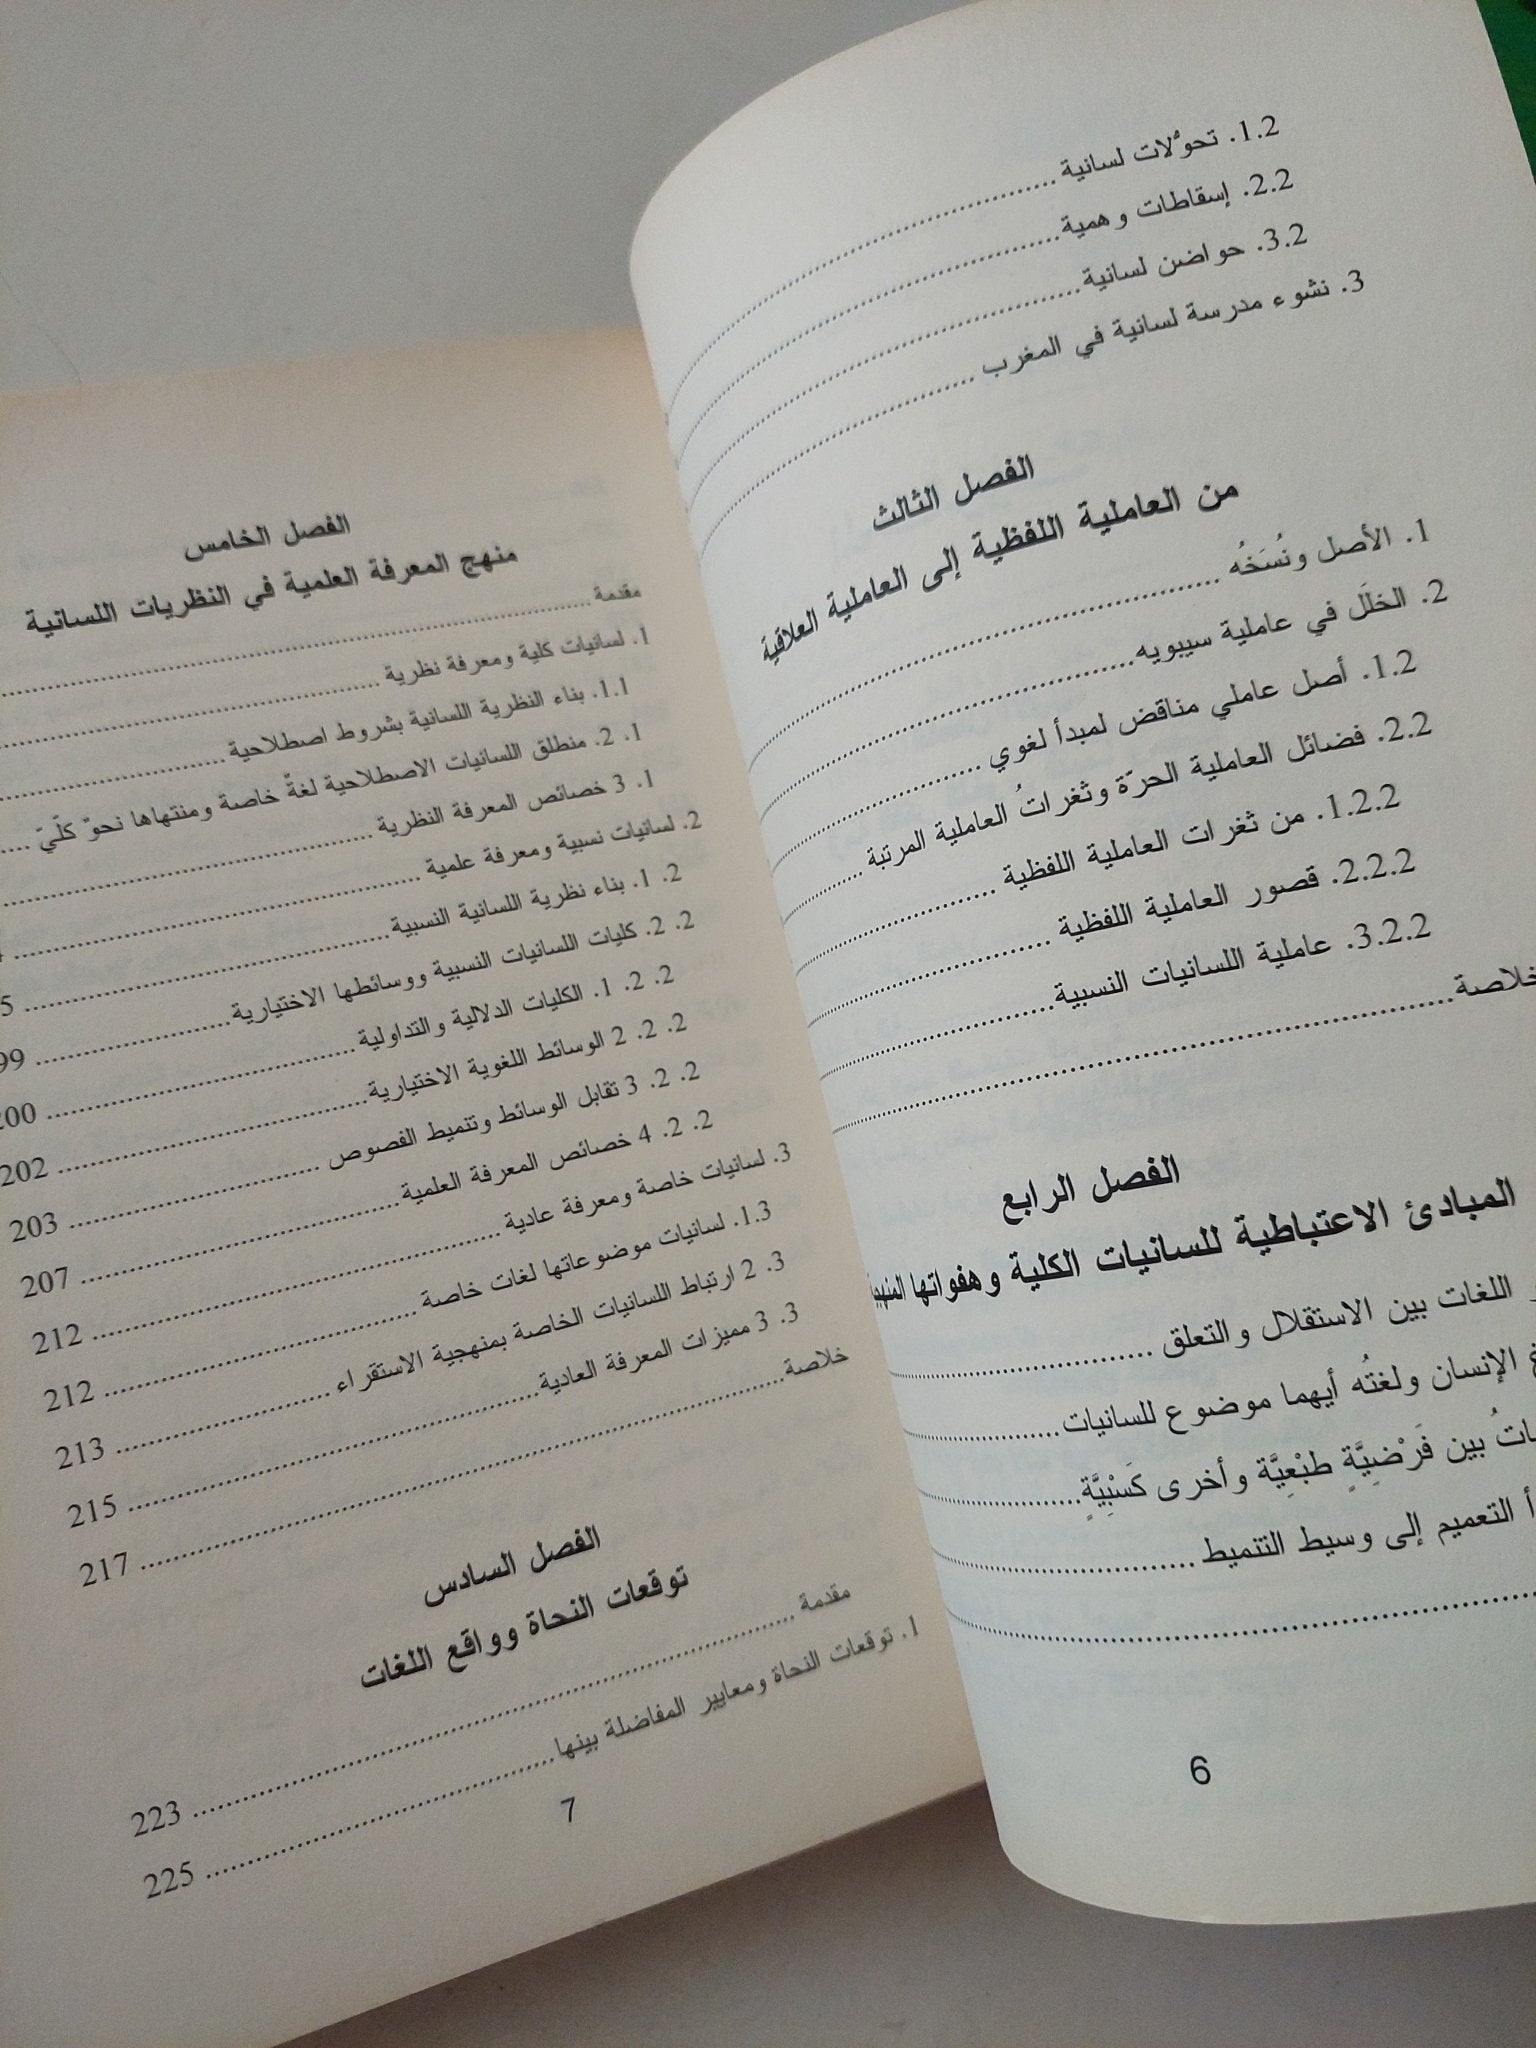 1.2. تحوّلات لسانية
2.2. إسقاطات وهمية
3.2. حواضن لسانية
3. نشوء مدرسة لسانية في المغرب
الفصل الثالث
من العاملية اللفظية إلى العاملية العلاقية
1. الأصل ونُسَخُه
2. الخلَل في عاملية سيبويه
1.2. أصل عاملي مناقض لمبدأ لغوي
2.2. فضائل العاملية الحرّة وثغراتُ العاملية المرتبة
1.2.2. من ثغرات العاملية اللفظية
2.2.2. قصور العاملية اللفظية
3.2.2. عاملية اللسانيات النسبية
خلاصة
الفصل الرابع
المبادئ الاعتباطية للسانيات الكلية وهفواتها
اللغات بين الاستقلال والتعلق
الإنسان ولغتُه أيهما موضوع للسانيات
بين فَرْضِيَّةٍ طبْعِيَّة وأخرى كَسْبِيَّةٍ
التعميم إلى وسيط التنميط
6
الفصل الخامس
منهج المعرفة العلمية في النظريات اللسانية
مقدمة
1. لسانيات كلية ومعرفة نظرية
1.1. بناء النظرية اللسانية بشروط اصطلاحية
1. 2. منطلق اللسانيات الاصطلاحية لغةٌ خاصة ومنتهاها نحوٌ كلّيّ
1. 3 خصائص المعرفة النظرية
2. لسانيات نسبية ومعرفة علمية
2. 1. بناء نظرية اللسانية النسبية
2. 2. كليات اللسانيات النسبية ووسائطها الاختيارية
2. 2. 1. الكليات الدلالية والتداولية ........ 200
2. 2. 2 الوسائط اللغوية الاختيارية ........ 202
2. 2. 3 تقابل الوسائط وتنميط الفصوص ........ 203
2. 2. 4 خصائص المعرفة العلمية ........ 207
3. لسانيات خاصة ومعرفة عادية ........ 212
1.3. لسانيات موضوعاتها لغات خاصة ........ 212
3. 2 ارتباط اللسانيات الخاصة بمنهجية الاستقراء ........ 213
3. 3 مميزات المعرفة العادية ........ 215
خلاصة ........ 217
الفصل السادس
توقعات النحاة وواقع اللغات
مقدمة ........ 223
1. توقعات النحاة ومعايير المفاضلة بينها ........ 225
7